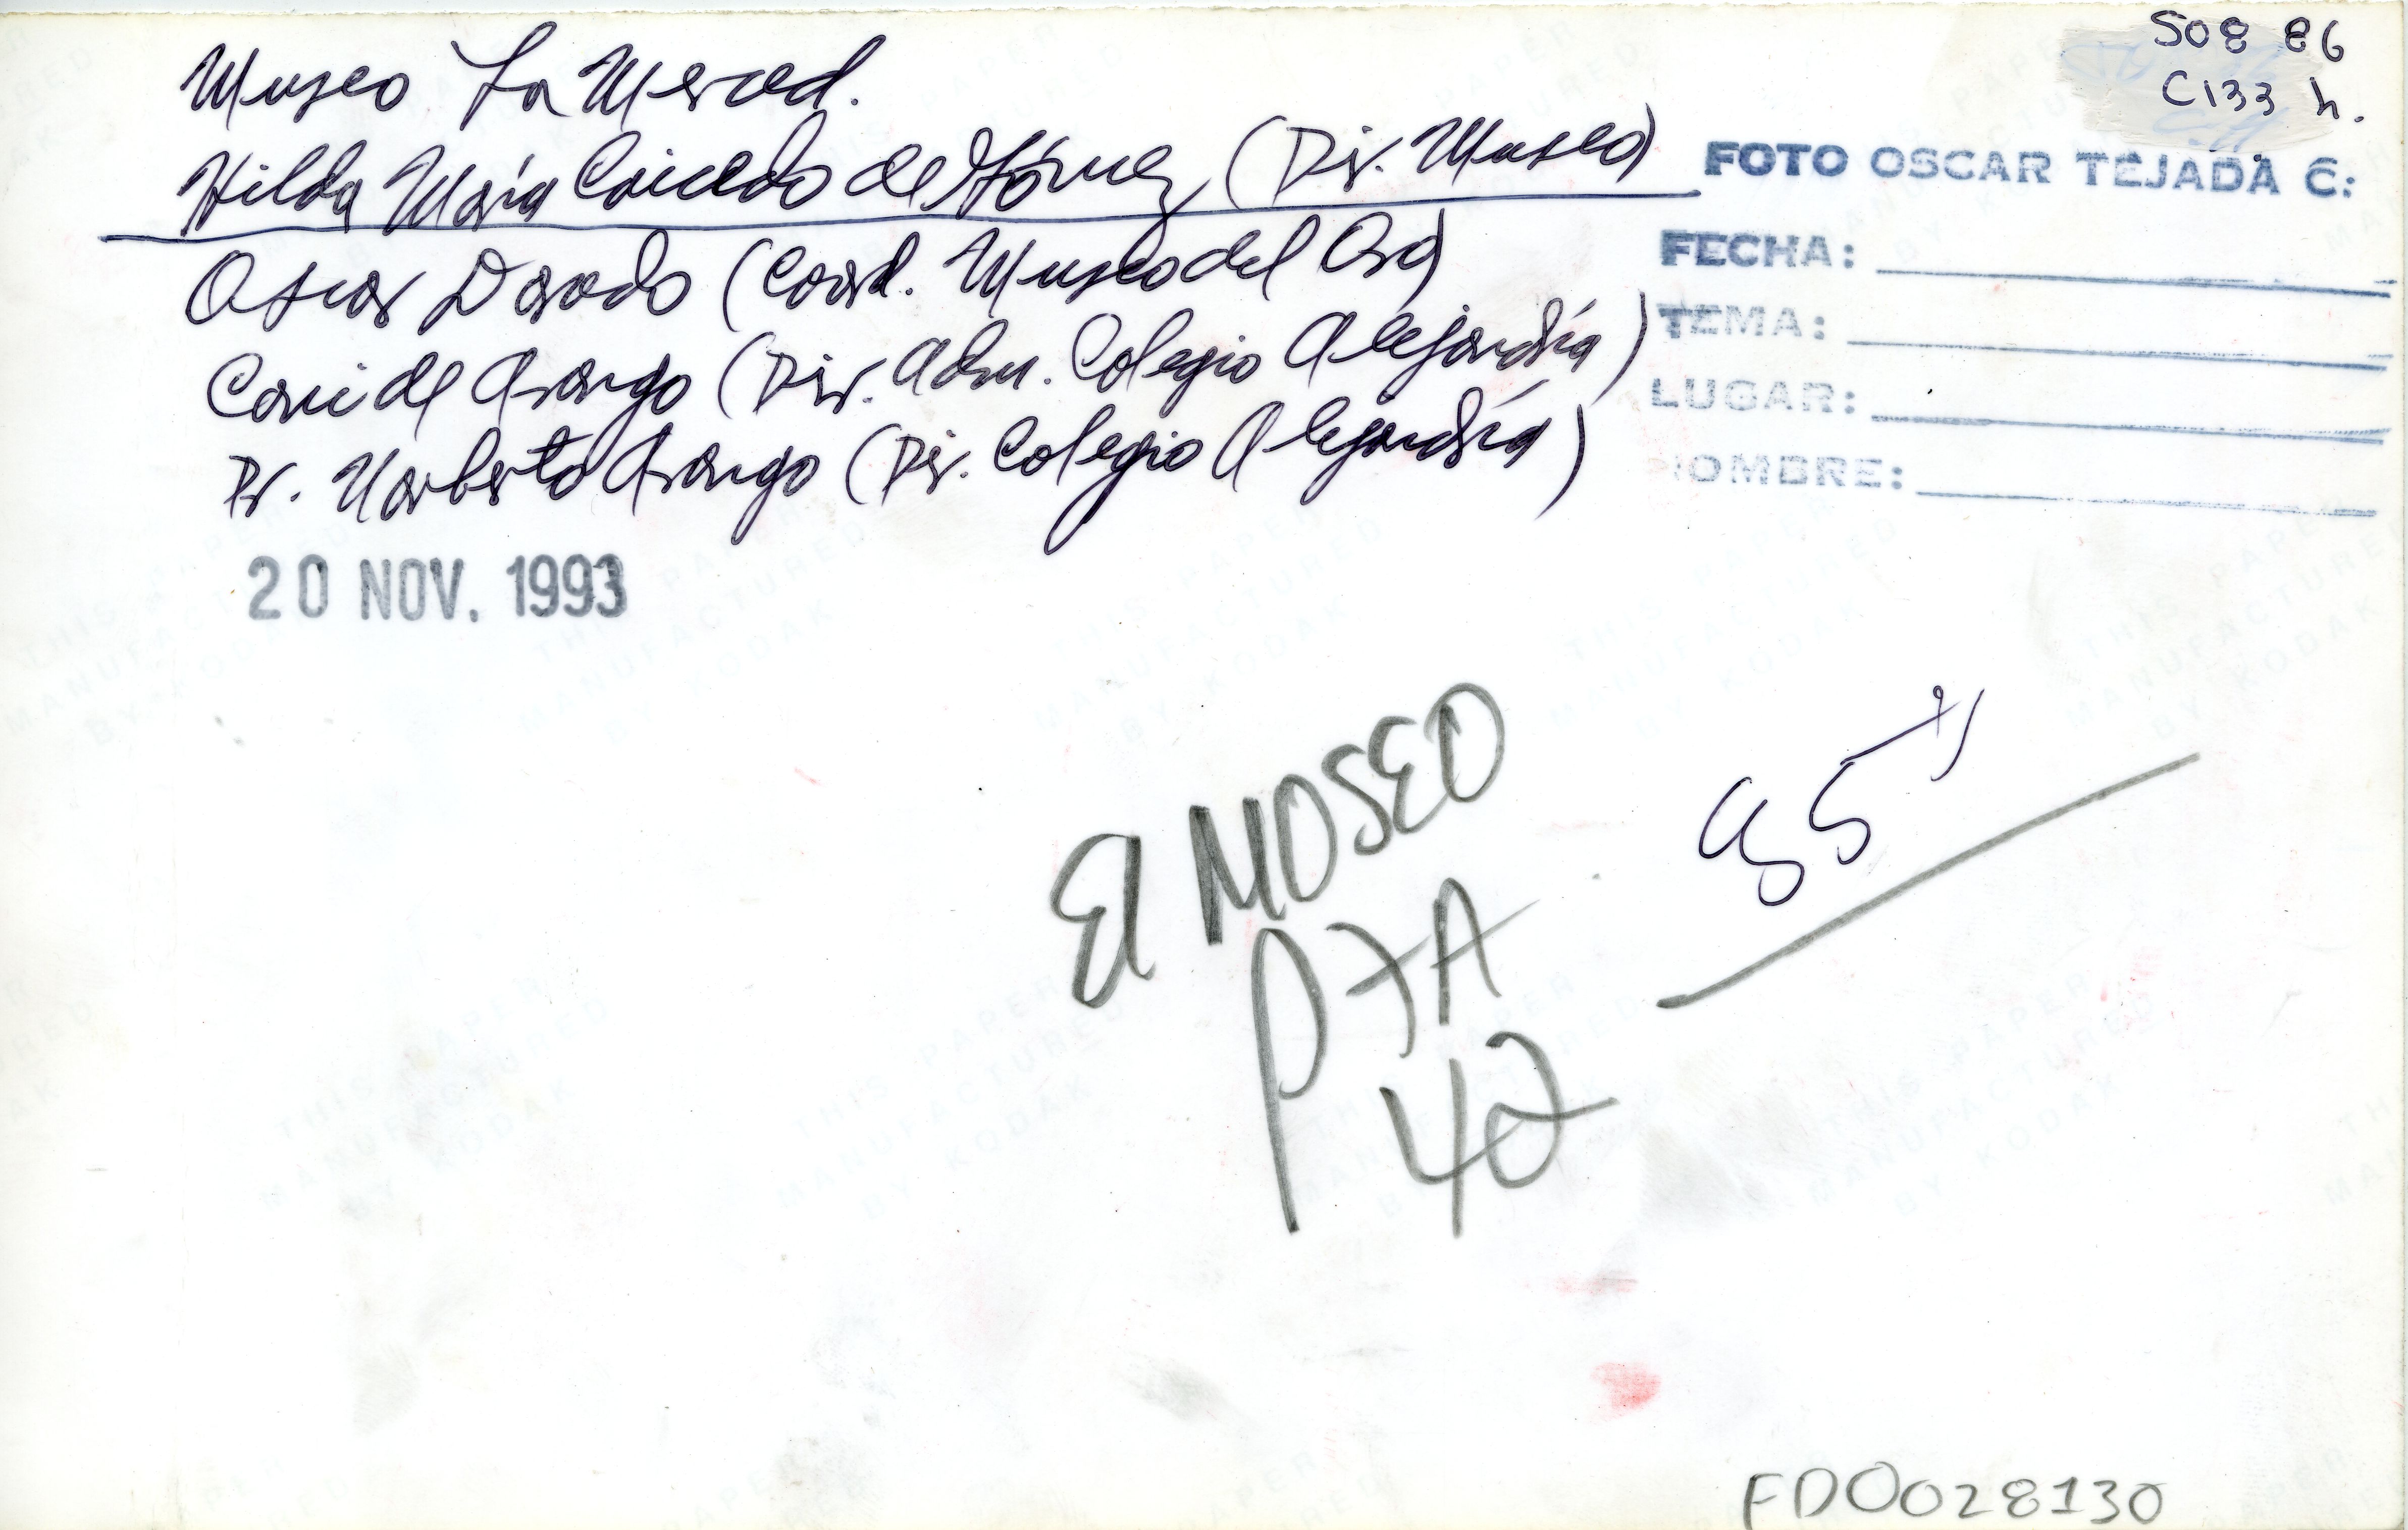 508 86
C133 h.
Museo La Merced.
Hilda María Caicedo de Gómez (Dir. Museo)
Oscar Dorado (Coord. Museo del Oro)
Cari de Arango (Dir. Adm. Colegio Alejandría)
Dr. Norberto Arango (Dir. Colegio Alejandría)
FOTO OSCAR TEJADA C:
FECHA:
TEMA:
LUGAR:
NOMBRE:
20 NOV. 1993
El MOSEO
P7A
42
95
FD0028130
THIS PAPER
MANUFACTURED
BY KODAK